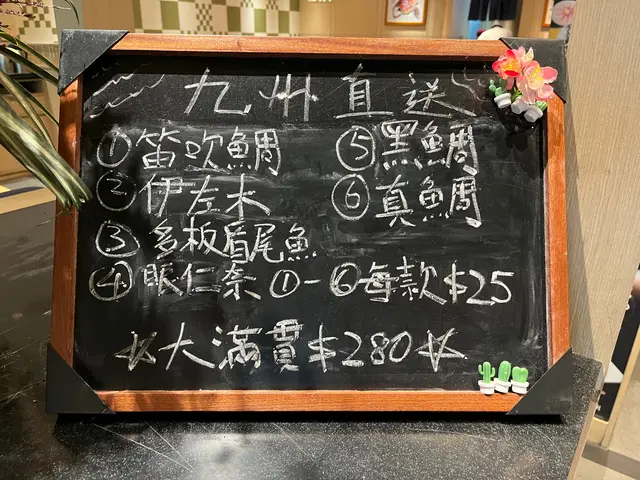 九州直送
①笛吹鯛
②伊左木
③多板盾尾魚
④眠仁奈
⑤黑鯛
⑥真鯛
①-⑥每款$25
☆大滿貫$280☆